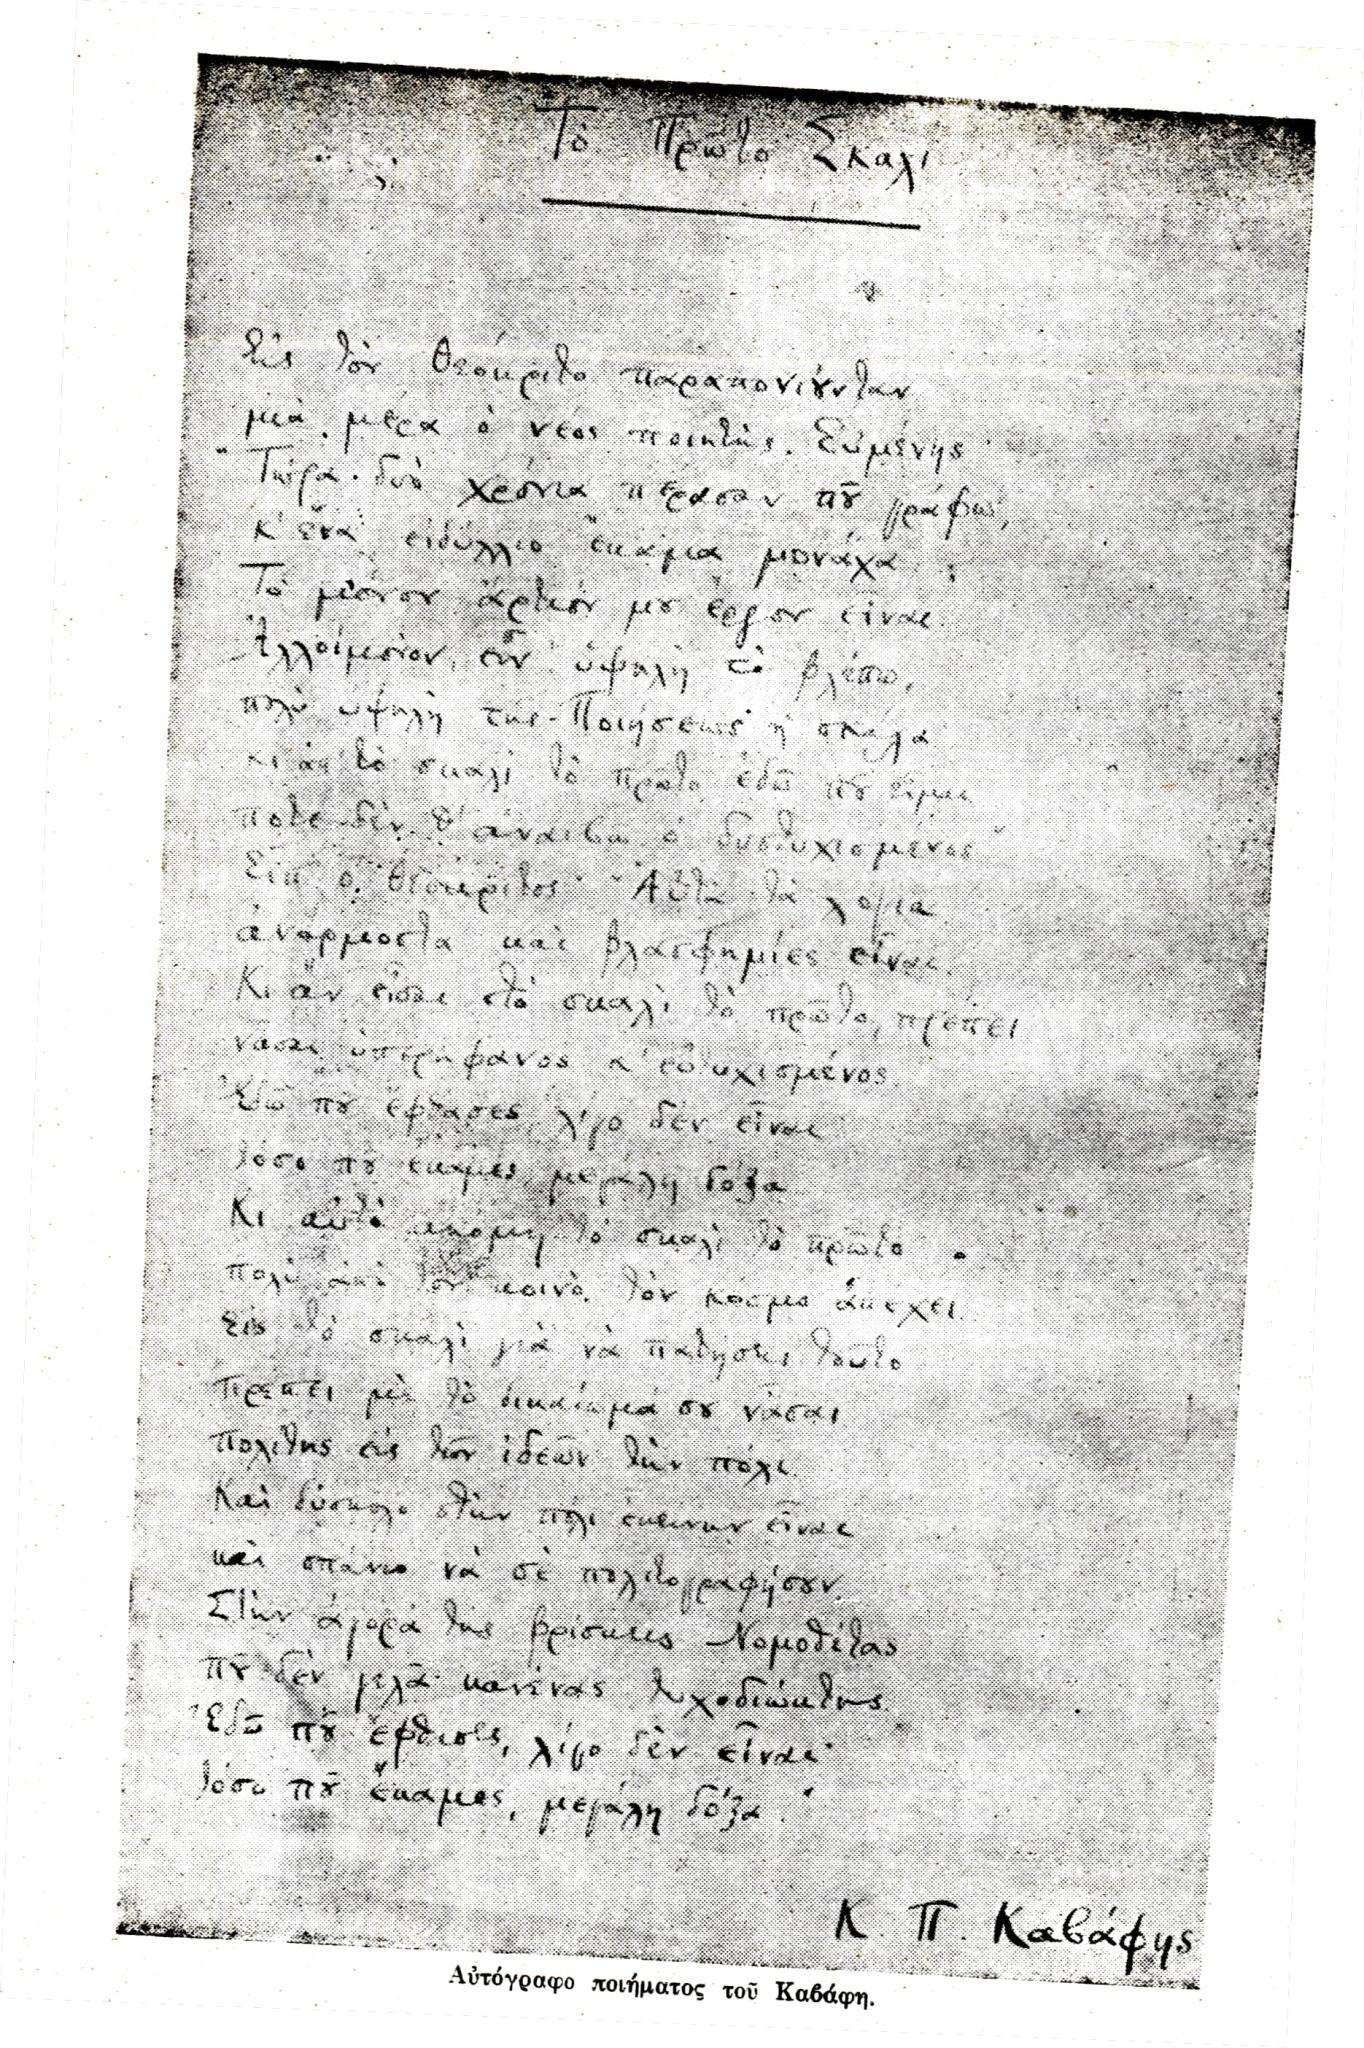 Τὸ Πρῶτο Σκαλί
Εἰς τὸν Θεόκριτο παραπονιοῦνταν
μιὰ μέρα ὁ νέος ποιητὴς Εὐμένης·
"Τώρα δυὸ χρόνια πέρασαν ποῦ γράφω,
κ' ἕνα εἰδύλλιο ἔκαμα μονάχα.
Τὸ μόνον ἄρτιόν μου ἔργον εἶναι.
Ἀλλοίμονον, εἶν' ὑψηλὴ τὸ βλέπω,
πολὺ ὑψηλὴ τῆς Ποιήσεως ἡ σκάλα·
κι ἀπ' τὸ σκαλὶ τὸ πρῶτο ἐδῶ ποῦ εἶμαι
ποτὲ δὲν θ' ἀναιβῶ ὁ δυστυχισμένος"
Εἶπ' ὁ Θεόκριτος· "Αὐτὰ τὰ λόγια
ἀνάρμοστα καὶ βλασφημίες εἶναι.
Κι ἂν εἶσαι στὸ σκαλὶ τὸ πρῶτο, πρέπει
νἆσαι ὑπερήφανος κ' εὐτυχισμένος.
Ἐδῶ ποῦ ἔφθασες, λίγο δὲν εἶναι·
τόσο ποῦ ἔκαμες, μεγάλη δόξα.
Κι αὐτὸ ἀκόμη τὸ σκαλὶ τὸ πρῶτο
πολὺ ἀπὸ τὸν κοινὸ τὸν κόσμο ἀπέχει.
Εἰς τὸ σκαλὶ γιὰ νὰ πατήσεις τοῦτο
πρέπει μὲ τὸ δικαίωμά σου νἆσαι
πολίτης εἰς τῶν ἰδεῶν τὴν πόλι.
Καὶ δύσκολο στὴν πόλι ἐκείνην εἶναι
καὶ σπάνιο νὰ σὲ πολιτογραφήσουν.
Στὴν ἀγορά της βρίσκεις Νομοθέτας
ποῦ δὲν γελᾶ κανένας τυχοδιώκτης.
Ἐδῶ ποῦ ἔφθασες, λίγο δὲν εἶναι·
τόσο ποῦ ἔκαμες, μεγάλη δόξα."
Κ. Π. Καβάφης
Αὐτόγραφο ποιήματος τοῦ Καβάφη.